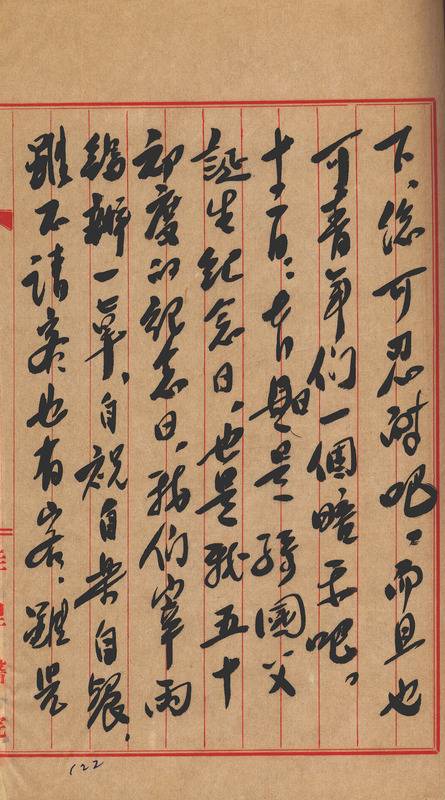 下、總可忍耐吧。而且也
可青年们一個暗示吧。
十二日是 孫國父
誕生紀念日，也是我五十
初度的紀念日，我们宰兩
辦一桌，自祝自樂自餐，
雖不請客，也有客，雖是
122